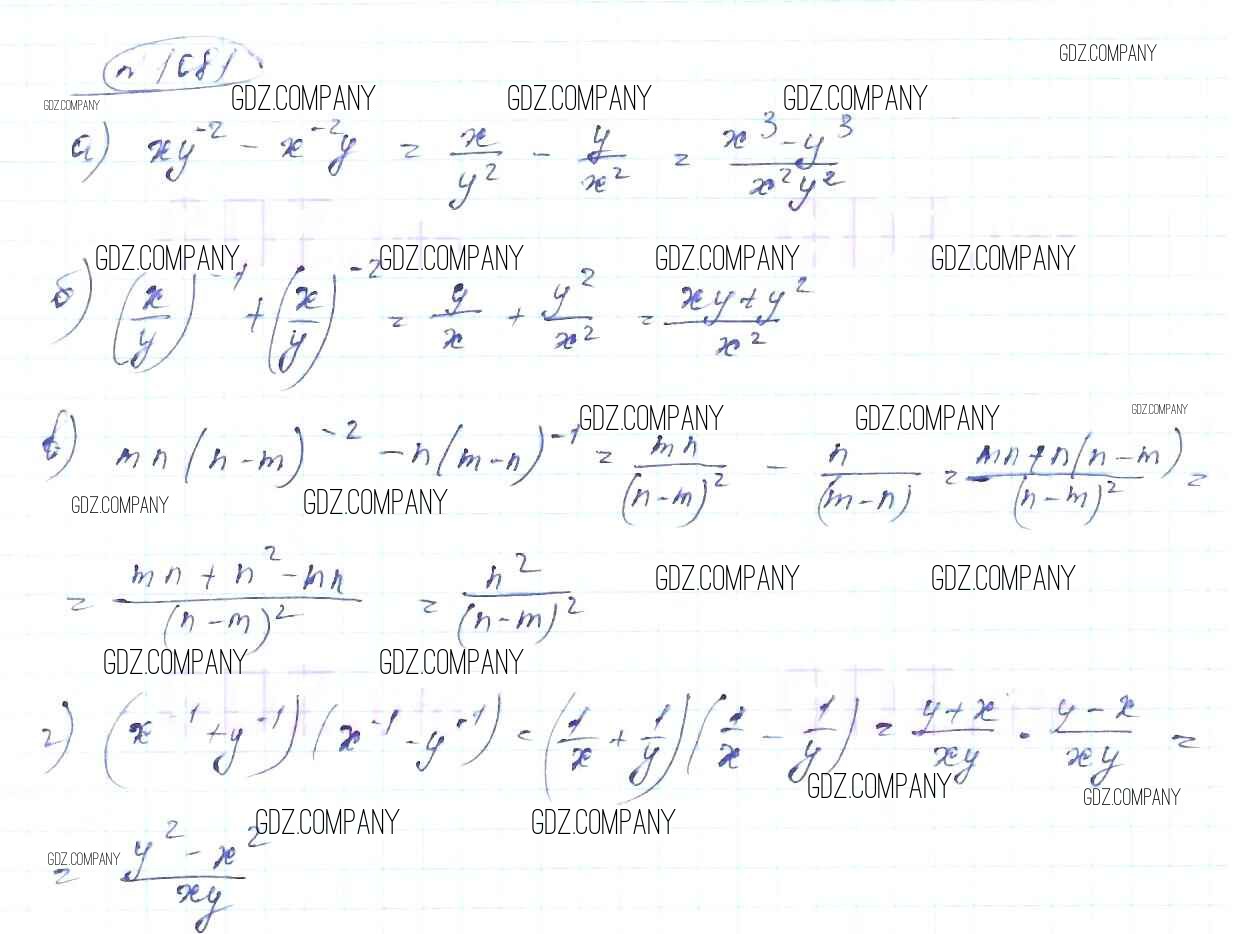 n 1081
GDZ.COMPANY
GDZ.COMPANY GDZ.COMPANY GDZ.COMPANY GDZ.COMPANY
а) xy^-2 - x^-2y = x/y^2 - y/x^2 = (x^3 - y^3)/(x^2y^2)
GDZ.COMPANY GDZ.COMPANY GDZ.COMPANY GDZ.COMPANY
б) (x/y)^-1 + (x/y)^-2 = y/x + y^2/x^2 = (xy + y^2)/x^2
GDZ.COMPANY GDZ.COMPANY GDZ.COMPANY
в) mn(n-m)^-2 - n(m-n)^-1 = mn/(n-m)^2 - n/(m-n) = (mn + n(n-m))/(n-m)^2 =
GDZ.COMPANY GDZ.COMPANY
= (mn + n^2 - mn)/(n-m)^2 = n^2/(n-m)^2
GDZ.COMPANY GDZ.COMPANY
GDZ.COMPANY GDZ.COMPANY
г) (x^-1 + y^-1)(x^-1 - y^-1) = (1/x + 1/y)(1/x - 1/y) = (y+x)/xy · (y-x)/xy =
GDZ.COMPANY GDZ.COMPANY
GDZ.COMPANY GDZ.COMPANY
GDZ.COMPANY
= (y^2 - x^2)/xy